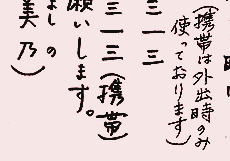 (携帯は外出時のみ
使っております)
三一三
三一三(携帯)
願いします。
よしの
美乃)